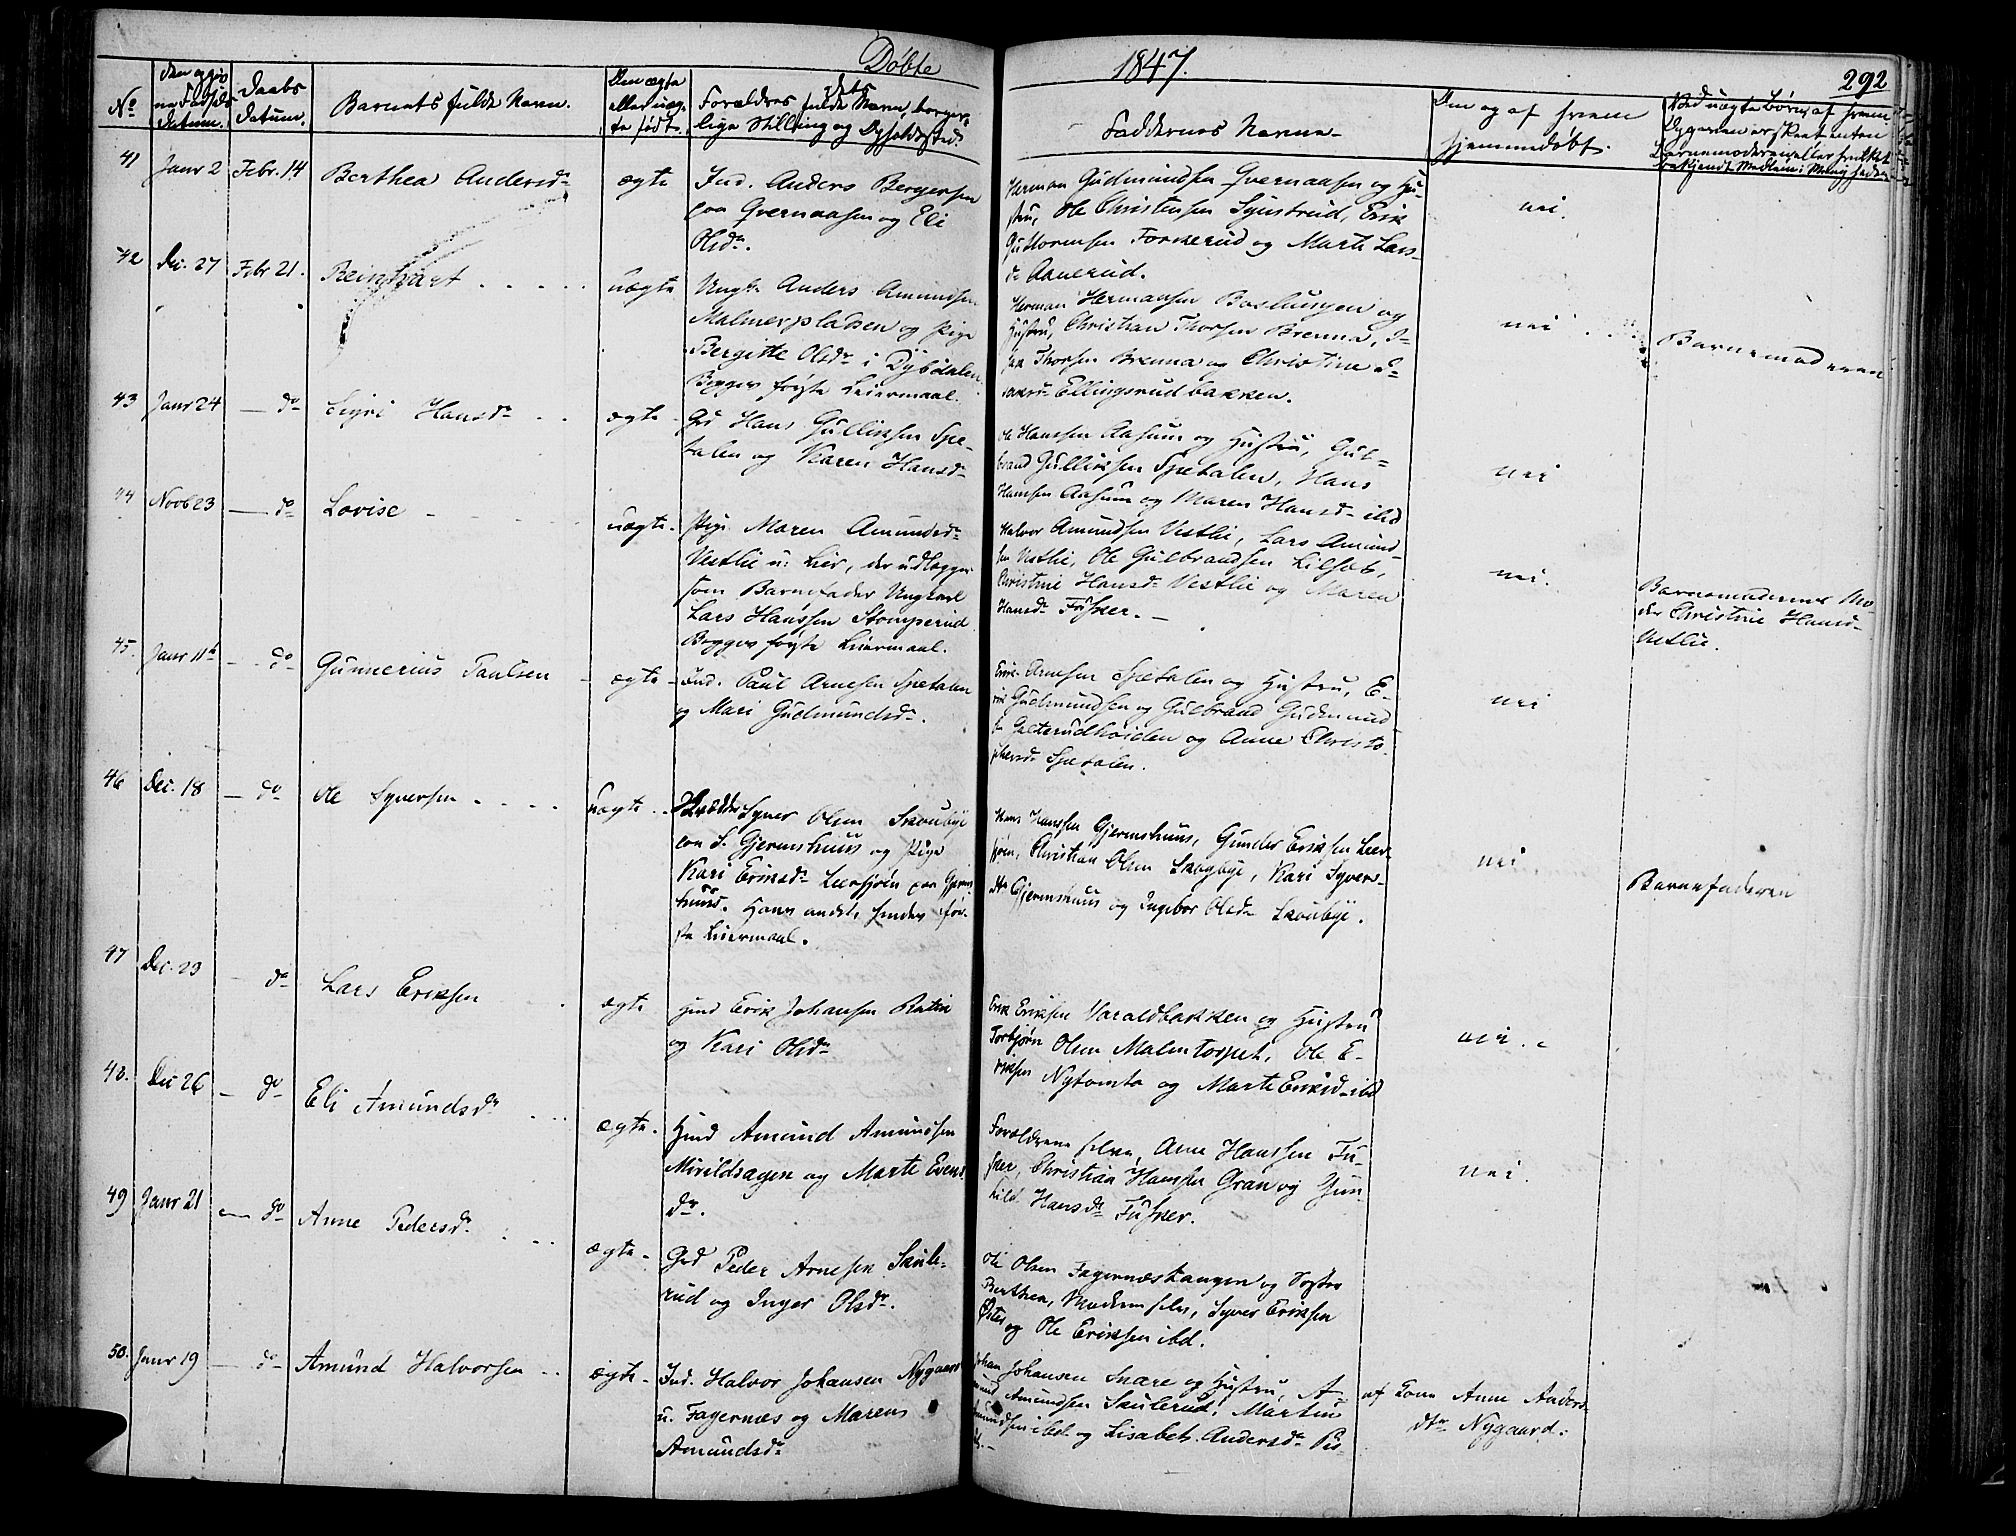 Døbte 1847. 292
No
Den opgiv
ne Fødsels
datum.
Daabs
datum.
Barnets fulde Navn.
Den ægte
eller uæg-
te født.
Forældres fulde Navn, borger-
lige Stilling og Opholdssted.
Faddernes Navne
Om og af hvem
hjemmedøbt.
41 Janr 2 Febr. 14 Berthea Andersdr ægte
Ind. Anders Bergersen
paa Gvernaasen og Eli
Olsdr.
Herman Gudmundsen Gvernaasen og Hu-
stru, Ole Christensen Synstrud, Erik
Guttormsen Fonkerud og Marte Lars-
dr Aanerud.
nei.
42 Dec. 27 Febr 21. Reinhart uægte
Ungk. Anders Amundsen
Malmerpladsen og Pige
Bergitte Olsdr i Dybdalen.
Begges første Leiermaal.
Herman Hermansen Baslungen og
Hustru, Christian Thorsen Brenna, I-
Thorsen Brenna og Christine I-
Ellingsrudbakken.
nei
Barnemoderen
43 Janr 24 — do Sigri Hansdr ægte
Gd Hans Gulliksen Spe-
talen og Karen Hansdr
Ole Hanssen Aasum og Hustru, Gul-
brand Gulliksen Spetalen, Hans
Hanssen Aasum og Maren Hansdr ibd
nei
44 Novb 23 — do Lovise uægte.
Pige Maren Amundsdr
Vestlie u. Lier, der udlægger
som Barnefader Ungkarl
Lars Hanssen Stomperud
Begges første Leiermaal.
Halvor Amundsen Vestlie, Lars Amund-
sen Vestlie, Ole Gulbrandsen Lilset,
Christine Hansdr Vestlie og Maren
Hansdr Fusker.
nei.
Barnemoderens Mo-
der Christine Hansd-
Vestlie.
45. Janr 11te — do Gunnerius Paulsen ægte
Ind. Paul Arnesen Spetalen
og Mari Gudmundsdr.
Erik Arnesen Spetalen og Hustru, E-
rik Gudmundsen og Gulbrand Gudmund
Galterudhøiden og Anne Christo-
phersdr Spetalen.
nei
46 Dec. 18 — do Ole Syversen uægte
Syver Olsen Skoubye
paa S. Gjermshuus og Pige
Kari Eriksdr Leersjøen paa Gjerms-
huus. Hans andet, hendes før-
ste Leiermaal.
Hans Hanssen Gjermshuus, Gunder Eriksen Leer-
sjøen, Christian Olsen Skogbye, Kari Syvers-
dtr Gjermshuus og Ingebor Olsdr Skoubye.
nei
Barnefaderen
47 Dec. 23 — do Lars Eriksen ægte
Hmd Erik Johansen
og Kari Olsdr
Erik Eriksen Varaldbakken og Hustru
Torbjørn Olsen Malmtorpet, Ole E-
riksen Nytomta og Marte Eriksd- ibd
nei
48. Dec 26 — do Eli Amundsdr ægte.
Hmd Amund Amundsen
Mirildhagen og Marte Evens
dr.
Forældrene selve, Arne Hanssen Fu-
sker, Christian Hanssen Gran og Gun
hild Hansdr Fusker.
nei.
49 Janr 21 — do Anne Pedersdr ægte
Gd Peder Arnesen Skule-
rud og Inger Olsdr.
Ole Olsen Fagernæstangen og Søster
Berthea, Moderen selv, Syver Eriksen
og Ole Eriksen ibd.
50. Janr 19 — do Amund Halvorsen ægte
Ind. Halvor Johansen Nygaard
u. Fagernæs og Maren
Amundsdr
Johan Johansen Snare og Hustru, A-
mund Amundsen Skulerud, Martin
Amundsen ibd og Lisabet Andersdr
af Kone Anne Anders-
dtr Nygaard.